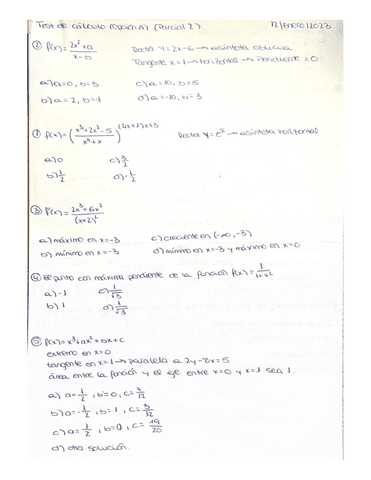 Test de cálculo (opción A) (Parcial 2) 12/ENERO/2023
② f(x)= 2x²+a / x-b Recta Y=2x-6 → asíntota oblicua
Tangente x=1 → horizontal → Pendiente=0
a) a=0, b=3 c) a=-10, b=5
b) a=2, b=-1 d) a=-10, b=3
① f(x)= (x³+2x²-5 / x³+x)^((2a+1)x+3) Recta Y=e² → asíntota horizontal
a) 0 c) 3/2
b) 1/2 d) -1/2
③ f(x)= 2x³+6x² / (x+2)²
a) máximo en x=-3 c) creciente en (-∞,-3)
b) mínimo en x=-3 d) mínimo en x=-3 y máximo en x=0
④ El punto con máxima pendiente de la función f(x)= 1/1+x²
a) -1 c) 1/√3
b) 1 d) -1/√3
⑤ f(x)= x³+ax²+bx+c
extremo en x=0
tangente en x=1 → paralela a 2y-8x=5
área entre la función y el eje entre x=0 y x=1 sea 1.
a) a=1/2, b=0, c=7/12
b) a=-1/2, b=1, c=5/12
c) a=1/2, b=0, c=19/20
d) otra solución.